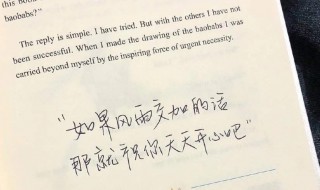 this bo
baobabs?"
The reply is simple. I have tried. But with the others I have not
been successful. When I made the drawing of the baobabs I was
carried beyond myself by the inspiring force of urgent necessity.
“如果风雨交加的话
那就祝你天天开心吧”